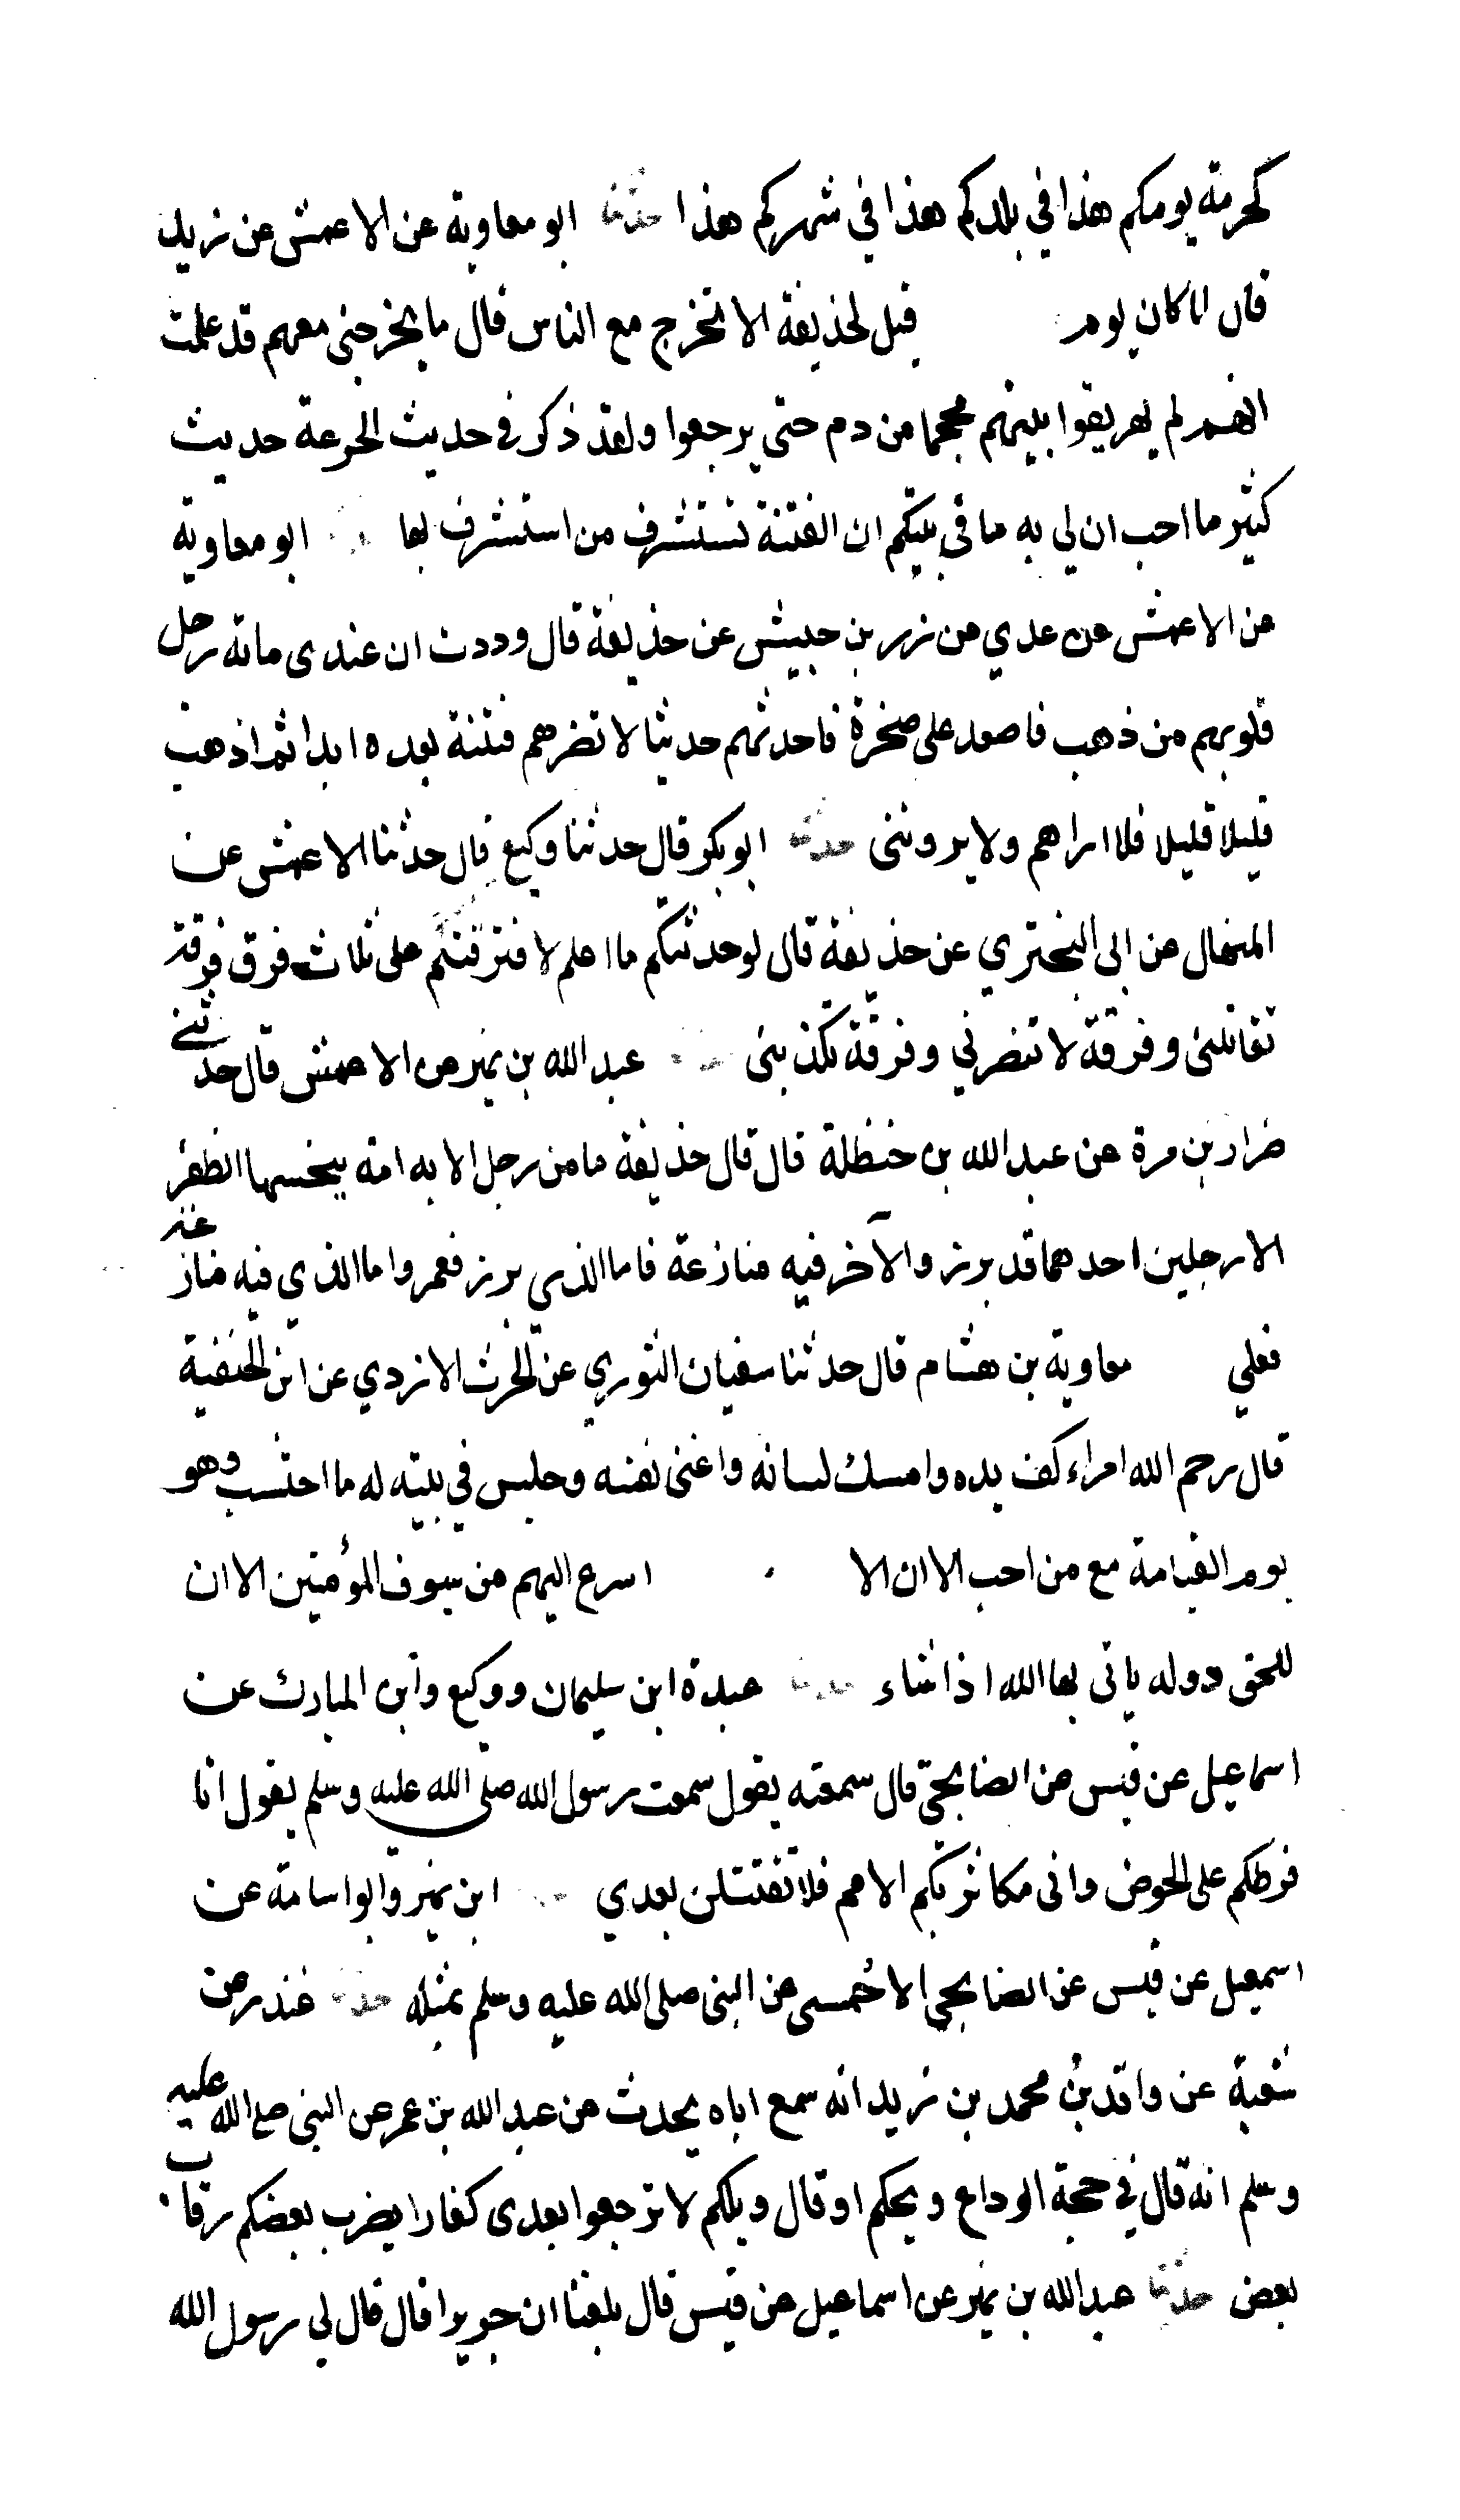 كحرمة يومكم هذا في بلدكم هذا في شهركم هذا حدثنا ابو معاوية عن الاعمش عن زيد
قال لما كان يوم قيل لحذيفة الا تخرج مع الناس قال ما يخرجني معهم قد علمت
انهم لم يهريقوا بينهم محجما من دم حتى يرجعوا ولقد ذكر في حديث الجرعة حديث
كثير ما احب ان لي به ما في بيتكم ان الفتنة تستشرف من استشرف لها ابو معاوية
عن الاعمش عن عدي عن زر بن حبيش عن حذيفة قال وددت ان عندي مائة رجل
قلوبهم من ذهب فاصعد على صخرة فاحدثهم حديثا لا تضرهم فتنة بعده ابدا ثم اذهب
قليلا قليلا فلا اراهم ولا يروننى حدثنا ابو بكر قال حدثنا وكيع قال حدثنا الاعمش عن
المنهال عن ابى البختري عن حذيفة قال لو حدثتكم ما اعلم لافترقتم على ثلاث فرق فرقة
تقاتلنى وفرقة لا تنصرني وفرقة تكذبنى عبد الله بن نمير عن الاعمش قال حدثنى
ضرار بن مرة عن عبد الله بن حنظلة قال قال حذيفة ما من رجل الا به امة يبخسها الظفر
الا رجلين احدهما قد برز والآخر فيه منازعة فاما الذي برز فعمر واما الذي فيه منازعة
فعلي معاوية بن هشام قال حدثنا سفيان الثوري عن الحرث الازدي عن ابن الحنفية
قال رحم الله امراء كف يده وامسك لسانه واغنى نفسه وجلس في بيته له ما احتسب وهو
يوم القيامة مع من احب الا ان الا اسرع اليهم من سيوف المؤمنين الا ان
للحق دوله ياتى بها الله اذا شاء حدثنا عبدة ابن سليمان ووكيع وابن المبارك عن
اسماعيل عن قيس عن الصنابحي قال سمعته يقول سمعت رسول الله صلى الله عليه وسلم يقول انا
فرطكم على الحوض وانى مكاثر بكم الامم فلا تقتتلن بعدي ابن نمير وابو اسامة عن
اسمعيل عن قيس عن الصنابحي الاحمسى عن النبى صلى الله عليه وسلم بمثله حدثنا غندر عن
شعبة عن واقد بن محمد بن زيد انه سمع اباه يحدث عن عبد الله بن عمر عن النبى صلى الله عليه
وسلم انه قال في حجة الوداع ويحكم او قال ويلكم لا ترجعوا بعدى كفارا يضرب بعضكم رقاب
بعض حدثنا عبد الله بن نمير عن اسماعيل عن قيس قال بلغنا ان جريرا قال قال لي رسول الله